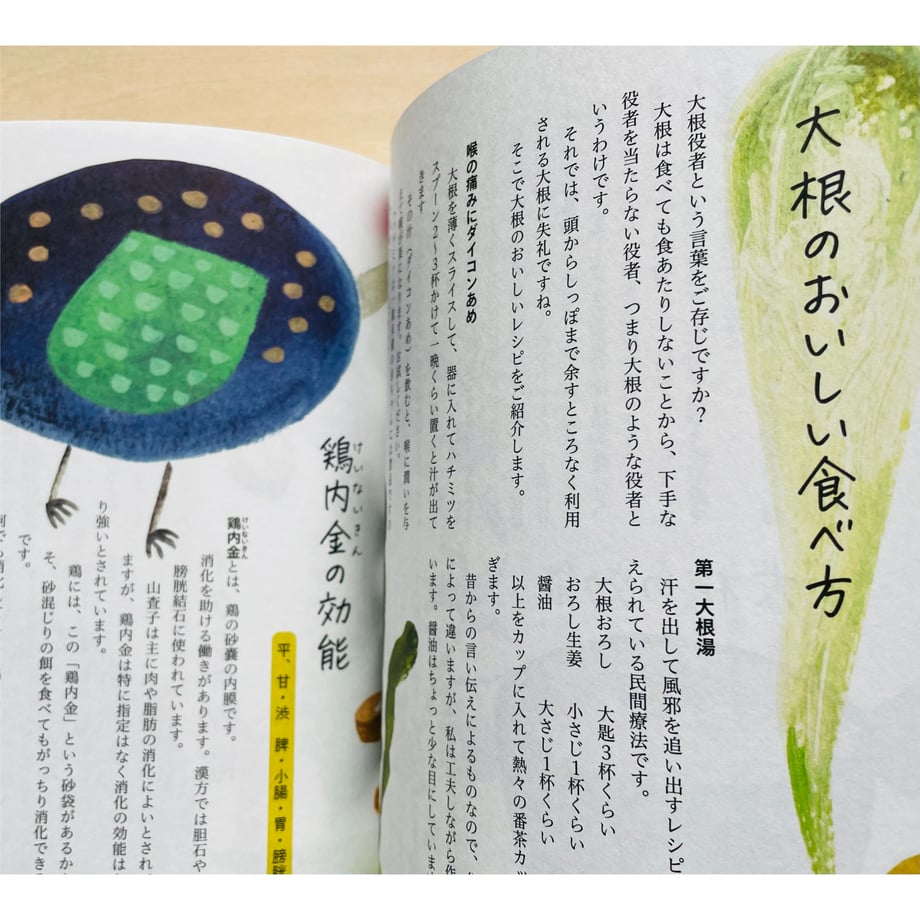 大根のおいしい食べ方
大根役者という言葉をご存じですか？
大根は食べても食あたりしないことから、下手な
役者を当たらない役者、つまり大根のような役者と
いうわけです。
それでは、頭からしっぽまで余すところなく利用
される大根に失礼ですね。
そこで大根のおいしいレシピをご紹介します。
喉の痛みにダイコンあめ
大根を薄くスライスして、器に入れてハチミツを
スプーン2～3杯かけて一晩くらい置くと汁が出て
きます
その汁（ダイコンあめ）を飲むと、喉に潤いを与
第一大根湯
汗を出して風邪を追い出すレシピ
えられている民間療法です。
大根おろし　大匙3杯くらい
おろし生姜　小さじ1杯くらい
醤油　大さじ1杯くらい
以上をカップに入れて熱々の番茶カッ
ぎます。
昔からの言い伝えによるものなので、
によって違いますが、私は工夫しながら作
います。醤油はちょっと少な目にしていま
けいないきん
鶏内金の効能
平、甘・渋　脾・小腸・胃・膀胱
けいないきん
鶏内金とは、鶏の砂嚢の内膜です。
消化を助ける働きがあります。漢方では胆石や
膀胱結石に使われています。
山査子は主に肉や脂肪の消化によいとされ
ますが、鶏内金は特に指定はなく消化の効能は
り強いとされています。
鶏には、この「鶏内金」という砂袋があるか
そ、砂混じりの餌を食べてもがっちり消化でき
です。
何でも消化